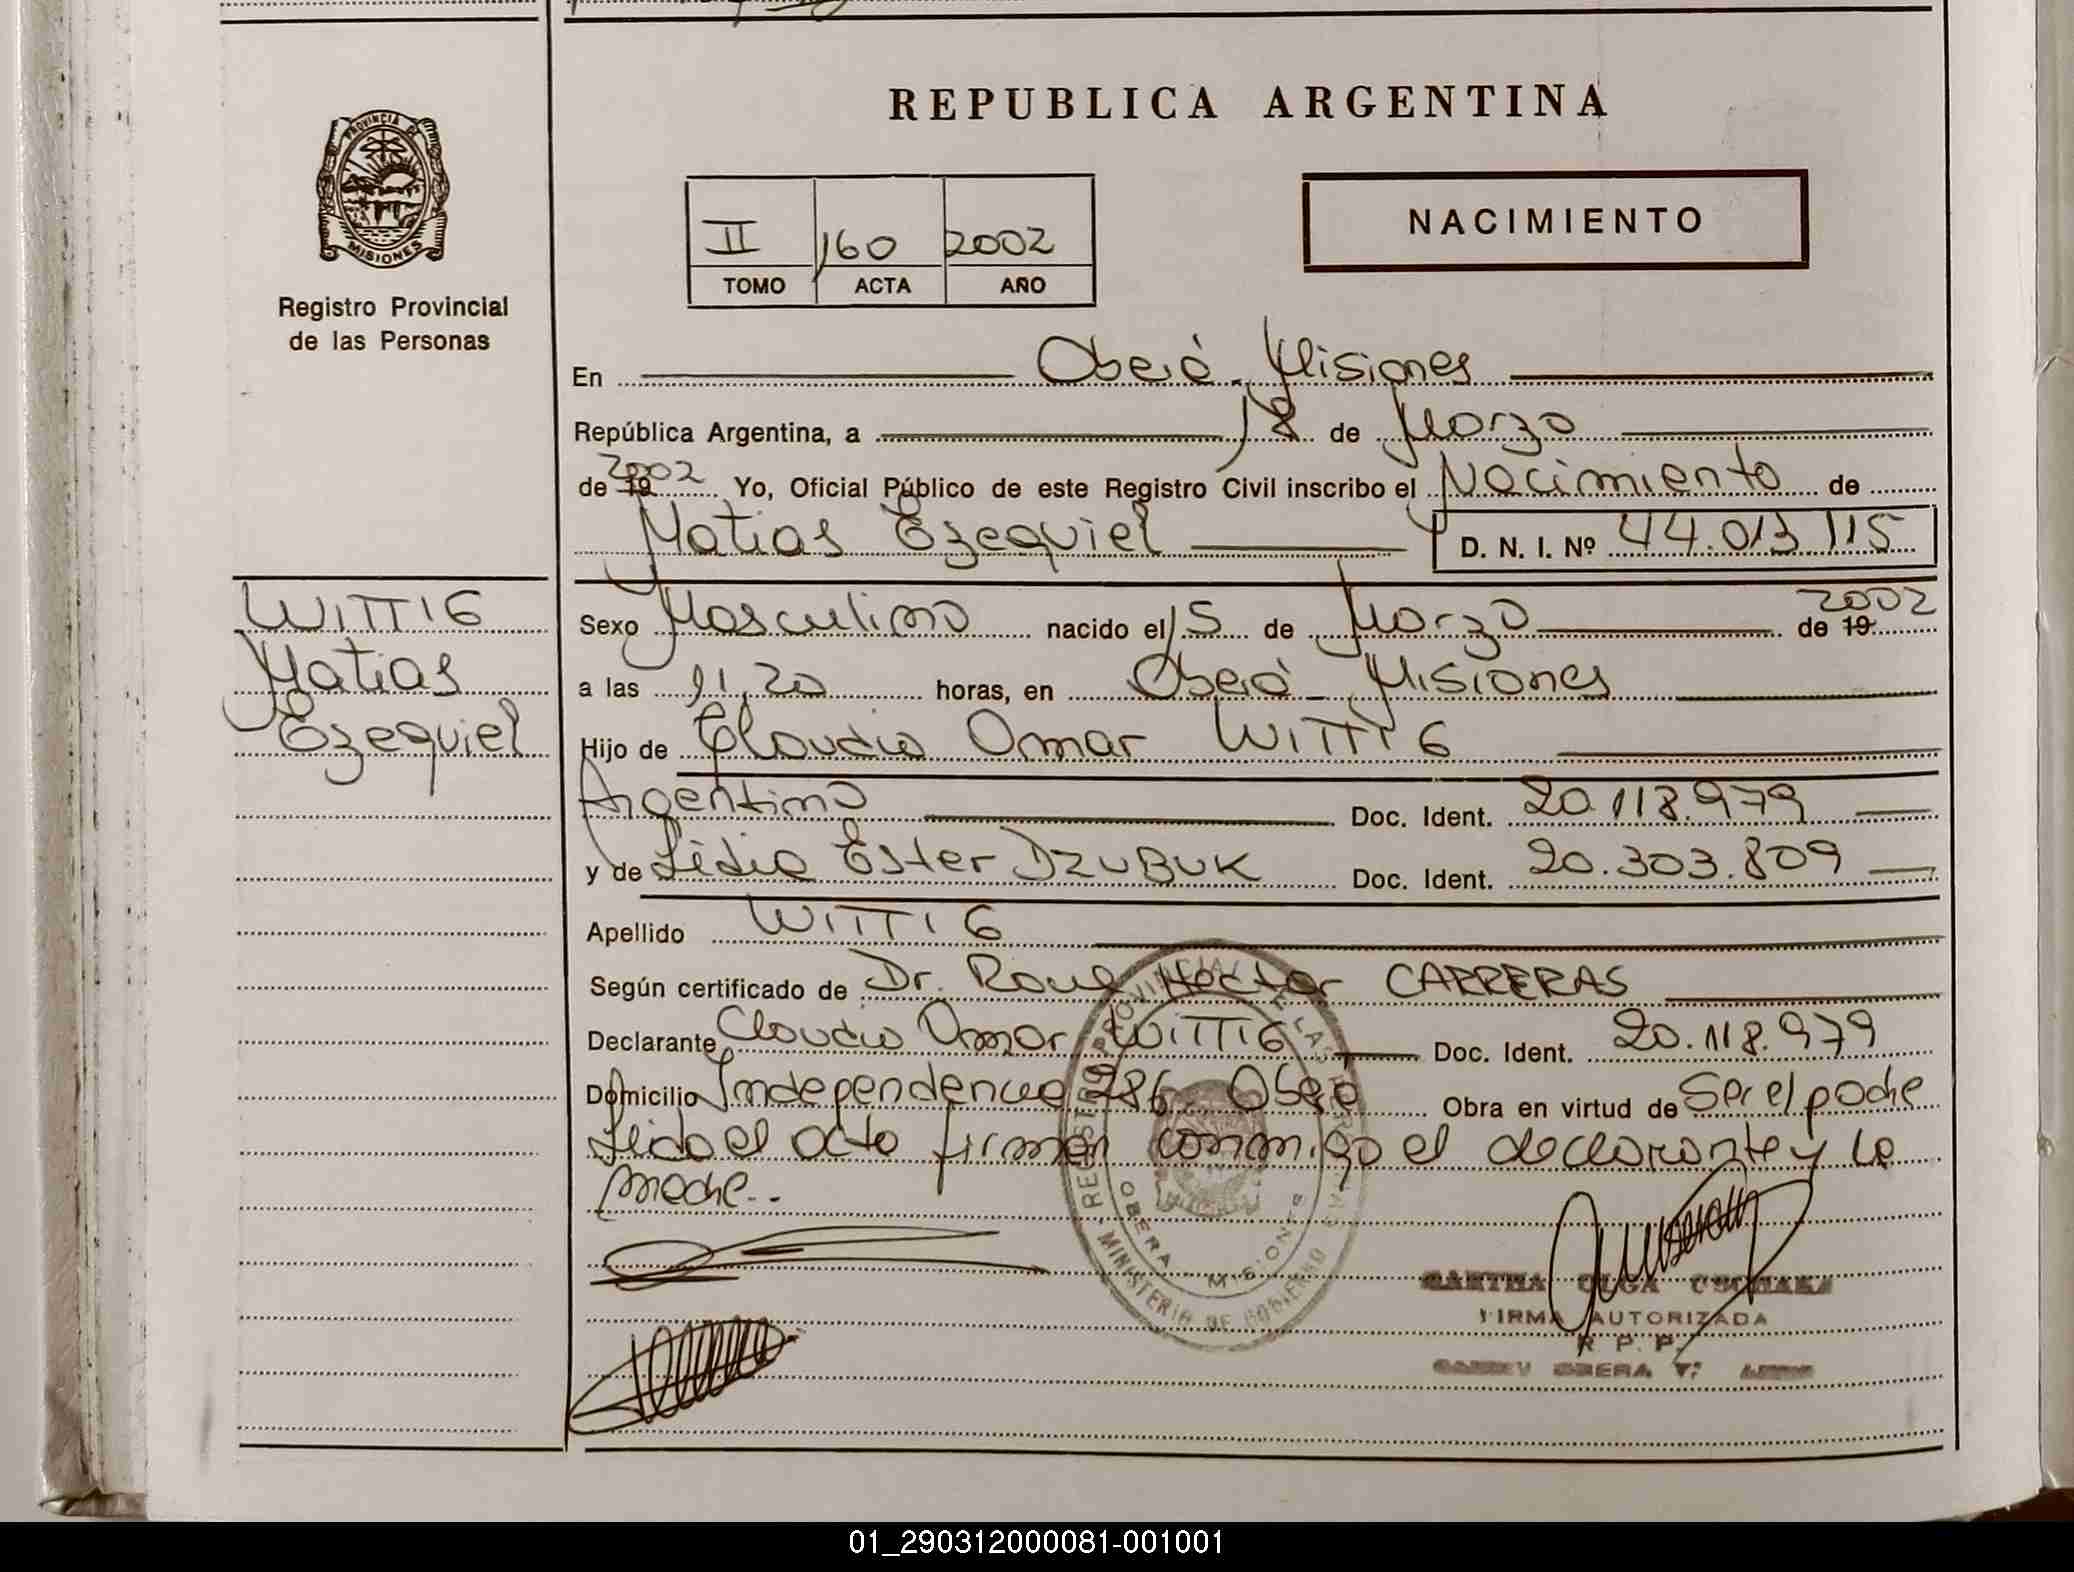 PROVINCIA DE
MISIONES
Registro Provincial
de las Personas
REPUBLICA ARGENTINA
II 160 2002
TOMO ACTA AÑO
NACIMIENTO
En Oberá - Misiones
República Argentina, a 18 de Marzo
de 19 2002 Yo, Oficial Público de este Registro Civil inscribo el Nacimiento de
Matias Ezequiel D. N. I. Nº 44.013.115
WITTIG
Matias
Ezequiel
Sexo Masculino nacido el 15 de Marzo de 19 2002
a las 11,20 horas, en Oberá - Misiones
Hijo de Claudio Omar WITTIG
Argentino Doc. Ident. 20.118.979
y de Lidia Ester DZUBUK Doc. Ident. 20.303.809
Apellido WITTIG
Según certificado de Dr. Raul Hector CARRERAS
Declarante Claudio Omar WITTIG Doc. Ident. 20.118.979
Domicilio Independencia 286 Oberá Obra en virtud de Ser el padre
Leida el acta firman conmigo el declarante y la
madre..
REGISTRO PROVINCIAL DE LAS PERSONAS
OBERA MISIONES
MINISTERIO DE GOBIERNO
OLGA
FIRMA AUTORIZADA
R. P. P.
OBERA
01_290312000081-001001